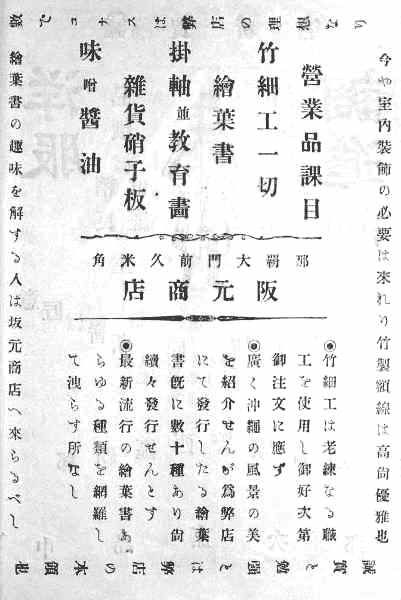 數でコナスは弊店の理想なり
今や室内裝飾の必要は來れり竹製額緣は高尚優雅也
營業品課目
竹細工一切
繪葉書
掛軸並教育畵
雜貨硝子板
味噌醬油
那覇大門前久米角
阪元商店
◉竹細工は老練なる職
工を使用し御好次第
御注文に應ず
◉廣く沖繩の風景の美
を紹介せんが爲弊店
にて發行したる繪葉
書旣に數十種あり尙
續々發行せんとす
◉最新流行の繪葉書あ
らゆる種類を網羅し
て洩らす所なし
繪葉書の趣味を解する人は坂元商店へ來らるべし
實と勉强とは弊店の本領也